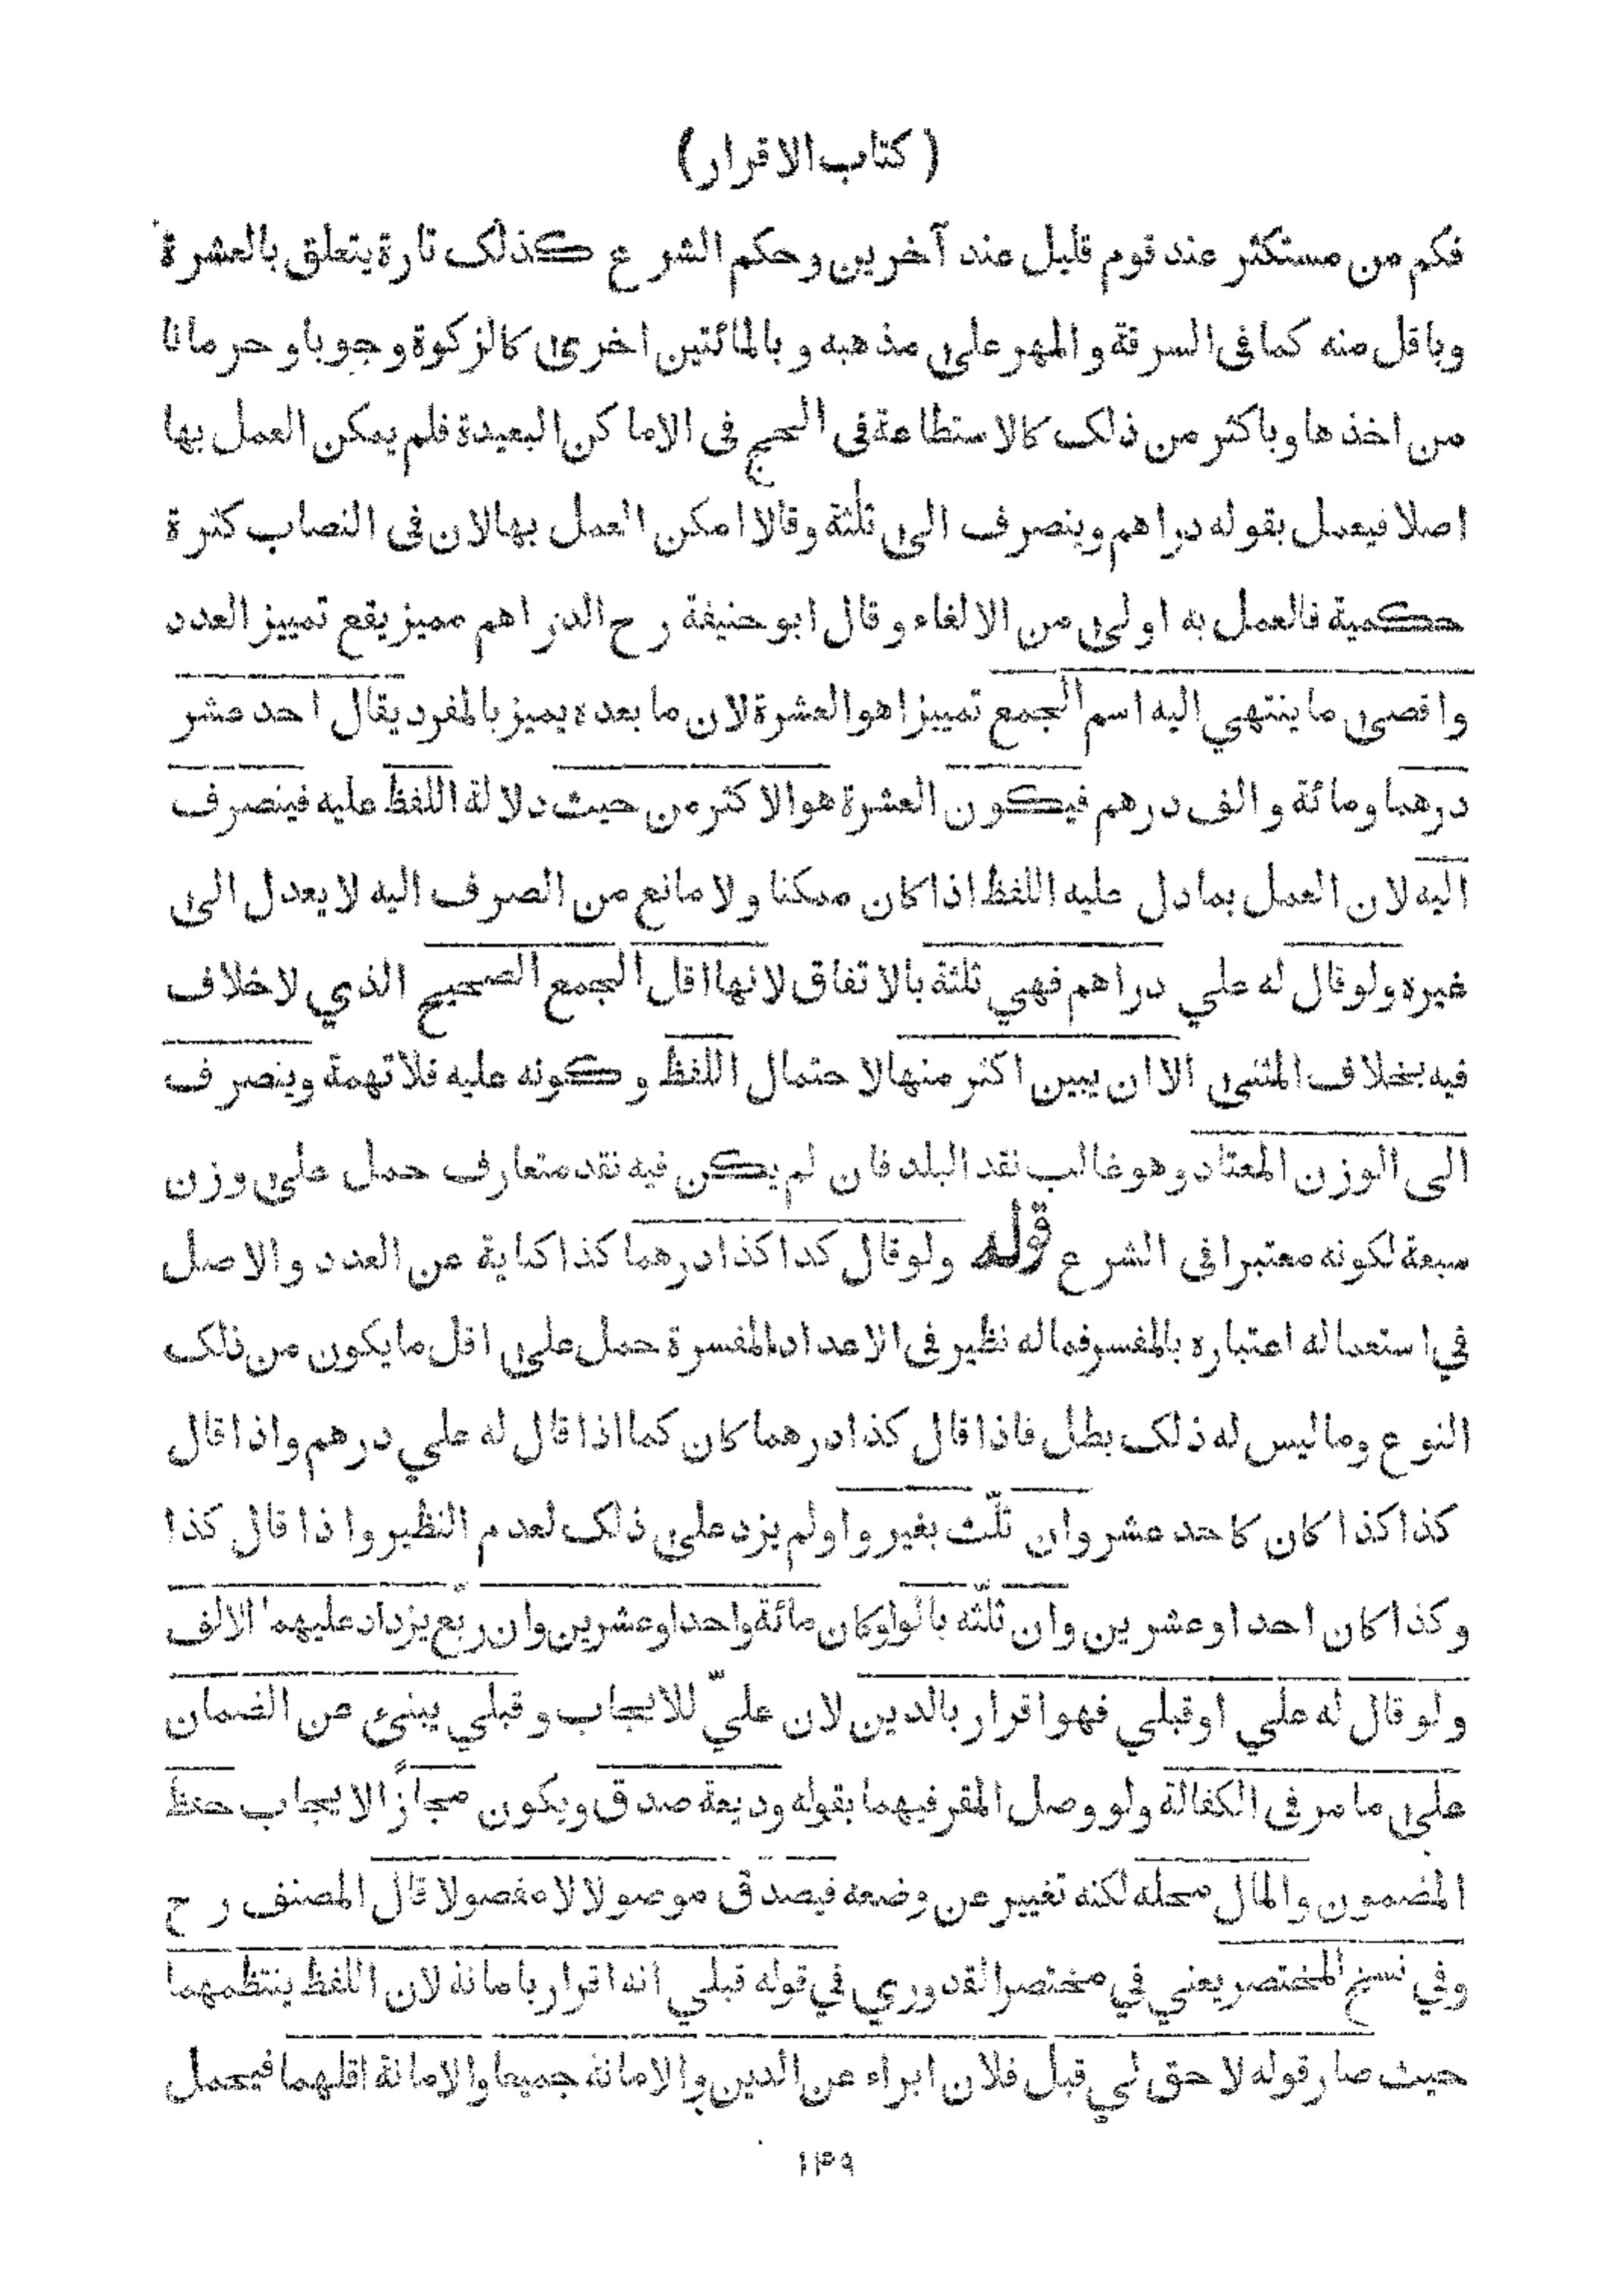 ( كتاب الاقرار )
فكم من مستكثر عند قوم قليل عند آخرين وحكم الشرع كذلك تارة يتعلق بالعشرة
وباقل منه كما في السرقة والمهر على مذهبه وبالمائتين اخرى كالزكوة وجوبا وحرمانا
من اخذها وباكثر من ذلك كالاستطاعة في الحج في الاماكن البعيدة فلم يمكن العمل بها
اصلا فيعمل بقوله دراهم وينصرف الى ثلثة وقالا امكن العمل بها لان في النصاب كثرة
حكمية فالعمل به اولى من الالغاء وقال ابو حنيفة رح الدراهم مميز يقع تمييز العدد
واقصى ما ينتهي اليه اسم الجمع تمييزا هو العشرة لان ما بعده يميز بالمفرد يقال احد عشر
درهما ومائة والف درهم فيكون العشرة هو الاكثر من حيث دلالة اللفظ عليه فينصرف
اليه لان العمل بما دل عليه اللفظ اذا كان ممكنا ولا مانع من الصرف اليه لا يعدل الى
غيره ولو قال له علي دراهم فهي ثلثة بالاتفاق لانها اقل الجمع الصحيح الذي لا خلاف
فيه بخلاف المثنى الا ان يبين اكثر منها لاحتمال اللفظ وكونه عليه فلا تهمة وينصرف
الى الوزن المعتاد وهو غالب نقد البلد فان لم يكن فيه نقد متعارف حمل على وزن
سبعة لكونه معتبرا في الشرع قوله ولو قال كذا كذا درهما كذا كناية عن العدد والاصل
في استعماله اعتباره بالمفسر فماله نظير في الاعداد المفسرة حمل على اقل ما يكون من ذلك
النوع وما ليس له ذلك بطل فاذا قال كذا درهما كان كما اذا قال له علي درهم واذا قال
كذا كذا كان كاحد عشر وان ثلّث بغير واو لم يزد على ذلك لعدم النظير واذا قال كذا
وكذا كان احدا وعشرين وان ثلّثه بالواو كان مائة واحدا وعشرين وان ربّع يزداد عليهما الالف
ولو قال له علي او قبلي فهو اقرار بالدين لان عليّ للايجاب وقبلي ينبئ عن الضمان
على ما مر في الكفالة ولو وصل المقر فيهما بقوله وديعة صدق ويكون مجازًا لايجاب حفظ
المضمون والمال محله لكنه تغيير عن وضعه فيصدق موصولا لا مفصولا قال المصنف رح
وفي نسخ المختصر يعني في مختصر القدوري في قوله قبلي انه اقرار بامانة لان اللفظ ينتظمهما
حيث صار قوله لا حق لي قبل فلان ابراء عن الدين والامانة جميعا والامانة اقلهما فيحمل
١٣٩